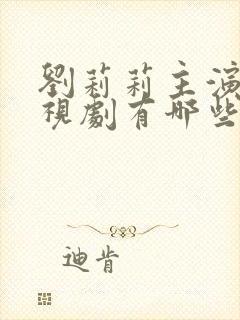 劉莉莉主演
視劇有哪些
迪肯